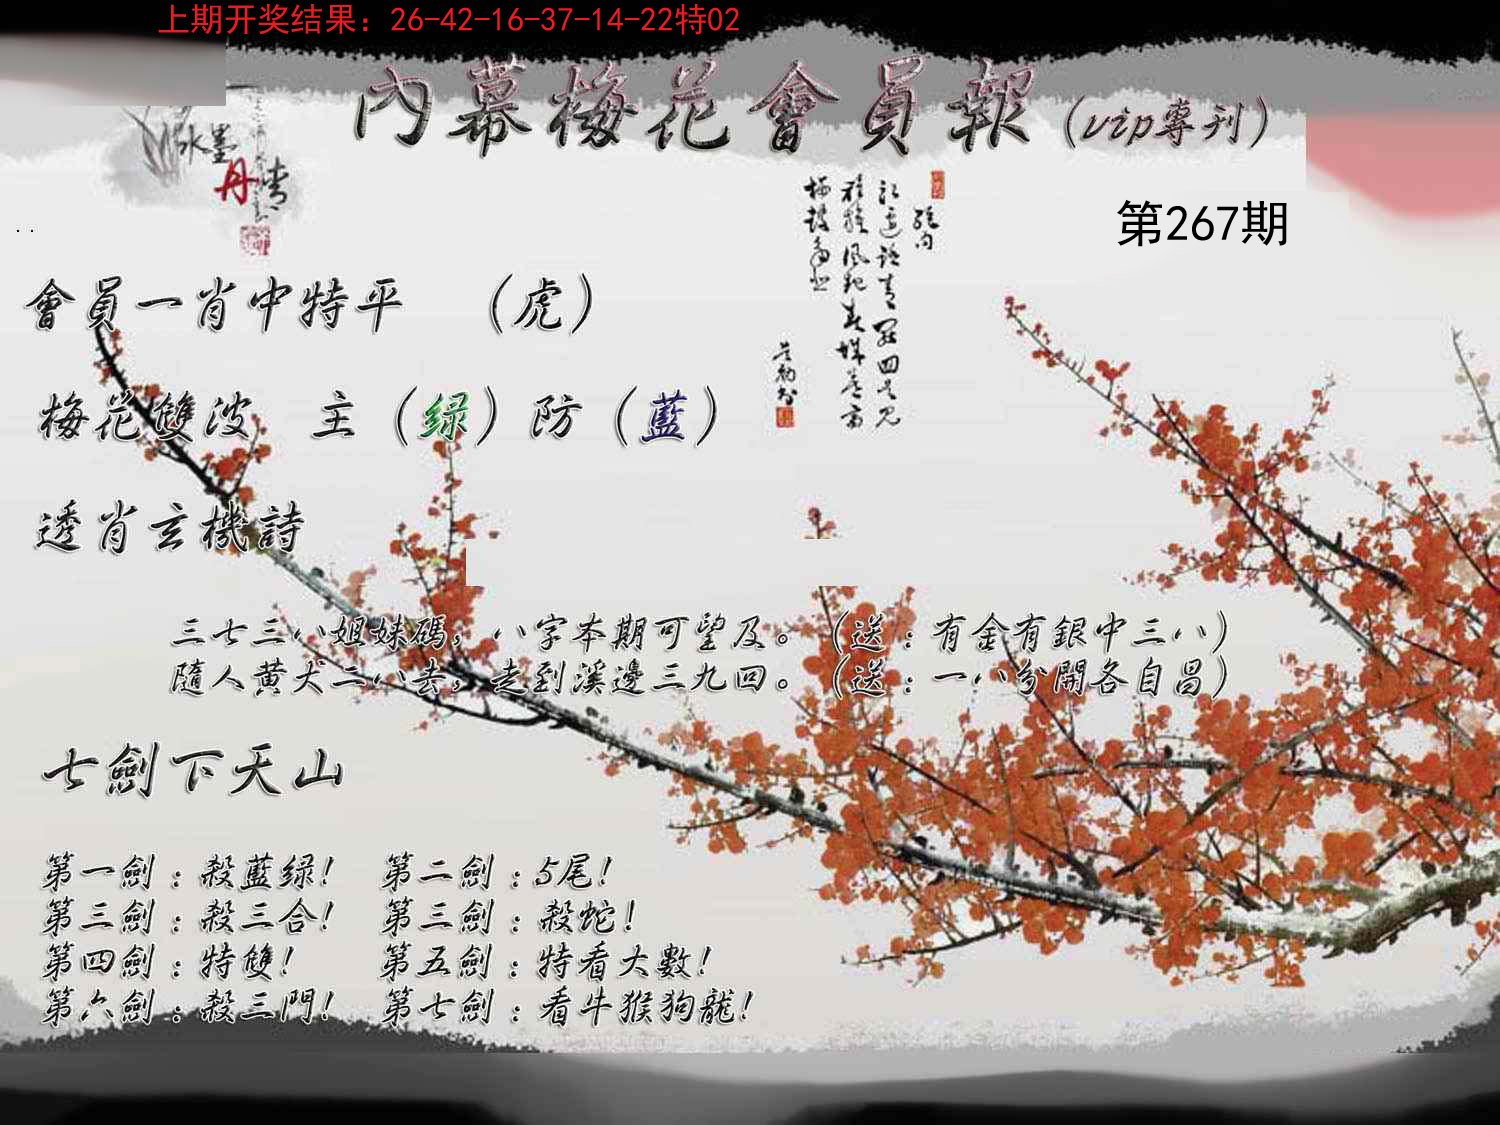 上期开奖结果：26-42-16-37-14-22特02
內幕梅花會員報（vip專刊）
水墨
丹青
第267期
..
會員一肖中特平　（虎）
梅花雙波　主（绿）防（藍）
透肖玄機詩
三七三八姐妹碼，八字本期可望及。（送：有金有銀中三八）
隨人黄犬二八去，走到溪邊三九回。（送：一八分開各自昌）
七劍下天山
第一劍：殺藍绿！　第二劍：5尾！
第三劍：殺三合！　第三劍：殺蛇！
第四劍：特雙！　　第五劍：特看大數！
第六劍：殺三門！　第七劍：看牛猴狗龍！